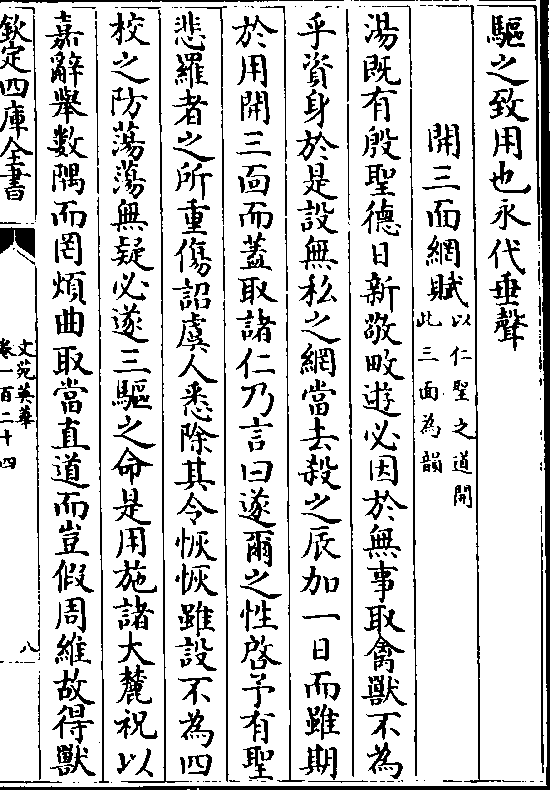 驅之致用也永代垂聲
開三面網賦以仁聖之道開此三面為韻
湯既有殷聖德日新敬畋遊必因於無事取禽獸不為
乎資身於是設無私之網當去殺之辰加一日而雖期
於用開三面而蓋取諸仁乃言曰遂爾之性啓予有聖
悲羅者之所重傷詔虞人悉除其令恢恢雖設不為四
校之防蕩蕩無疑必遂三驅之命是用施諸大麓祝以
嘉辭舉數隅而罔煩曲取當直道而豈假周維故得獸
欽定四庫全書
文苑英華
卷一百二十四
八